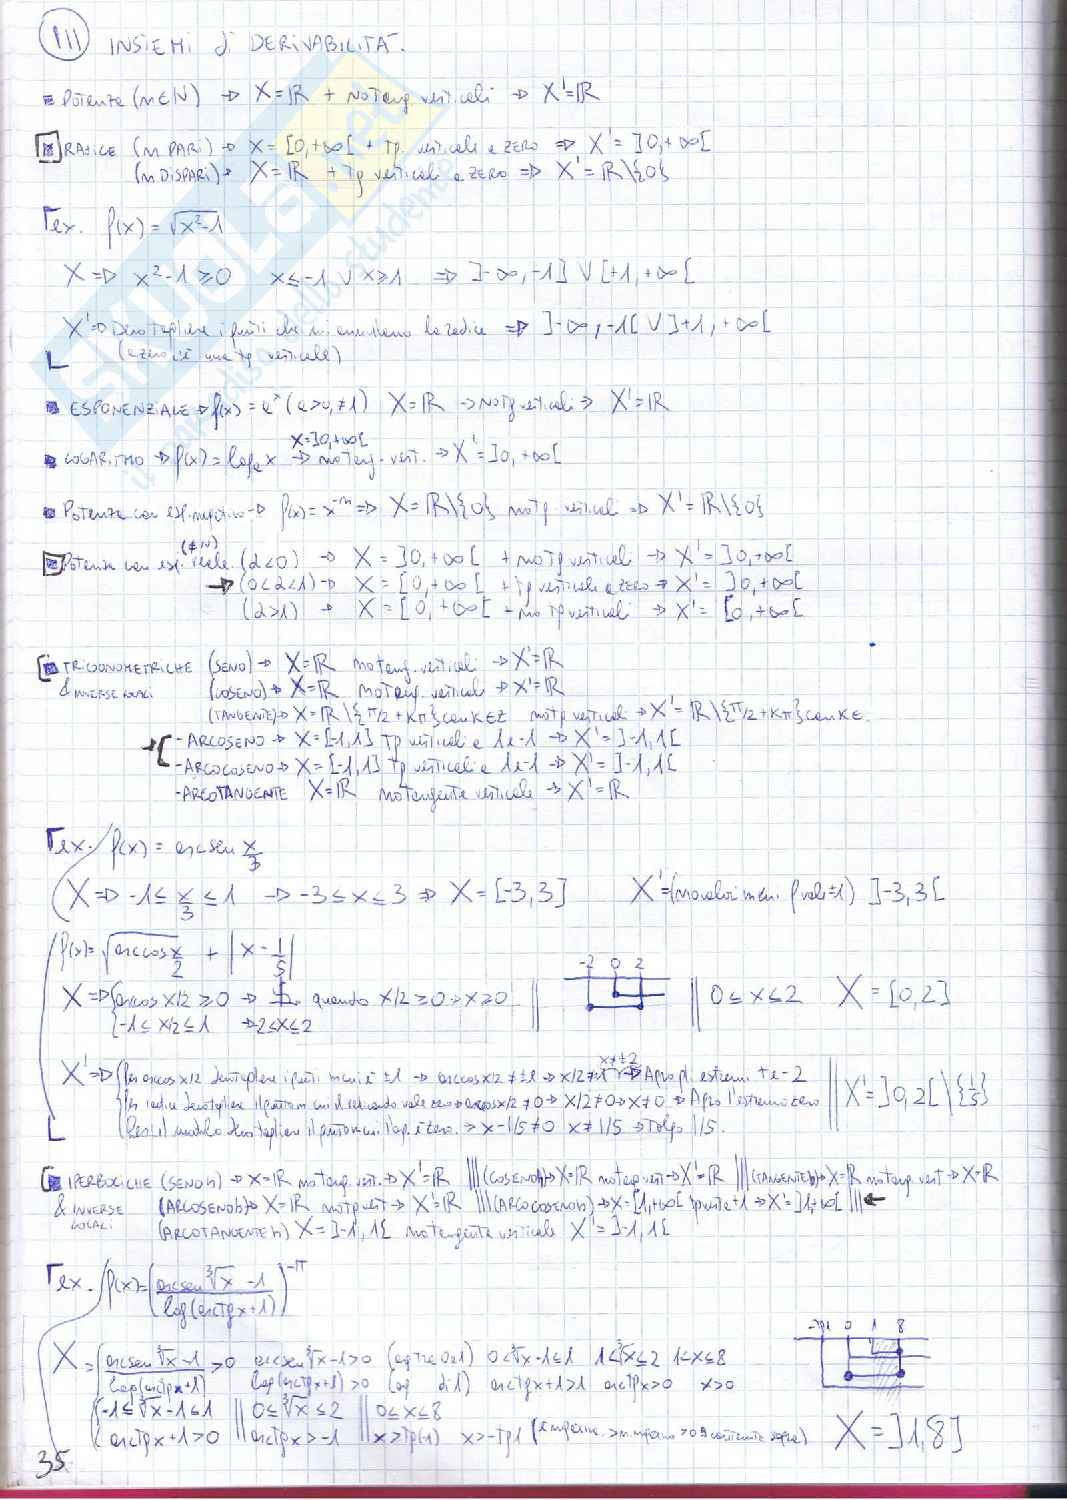 P11 INSIEMI di DERIVABILITÀ.
Potenze (n∈N) → X=R + no tang verticali → X'=R
RADICE (n PARI) → X=[0,+∞[ + Tg verticale a ZERO ⇒ X'=]0,+∞[
(n DISPARI) → X=R + Tg verticali a ZERO ⇒ X'=R\{0}
ex. f(x)=√x²-1
X ⇒ x²-1≥0 x≤-1 ∨ x≥1 ⇒ ]-∞,-1] ∨ [+1,+∞[
X' ⇒ Devo togliere i punti che mi annullano la radice ⇒ ]-∞,-1[ ∨ ]+1,+∞[
(a zero c'è una tg verticale)
ESPONENZIALE → f(x)=aˣ (a>0,≠1) X=R → no tg verticali ⇒ X'=R
X=]0,+∞[
LOGARITMO → f(x)=logₐx → no tang. vert. → X'=]0,+∞[
Potenze con esp. negativo → f(x)=x⁻ⁿ ⇒ X=R\{0} no tg. verticali ⇒ X'=R\{0}
(≠N)
Potenze con esp. reale. (α<0) → X=]0,+∞[ + no Tg verticali → X'=]0,+∞[
→ (0<α<1) → X=[0,+∞[ + Tg verticale a ZERO → X'=]0,+∞[
(α>1) → X=[0,+∞[ + no Tg verticali → X'=[0,+∞[
TRIGONOMETRICHE (SENO) → X=R no tang. verticali → X'=R
& INVERSE LOCALI (COSENO) → X=R no tang. verticali → X'=R
(TANGENTE) → X=R\{π/2+Kπ} con K∈Z no tg verticali → X'=R\{π/2+Kπ} con K∈.
-ARCOSENO → X=[-1,1] Tg verticali a 1 e -1 → X'=]-1,1[
-ARCOCOSENO → X=[-1,1] Tg verticali a 1 e -1 → X'=]-1,1[
-ARCOTANGENTE X=R no tangente verticale → X'=R
ex. f(x)=arcsen x/3
X ⇒ -1≤x/3≤1 → -3≤x≤3 ⇒ X=[-3,3] X'= ]-3,3[
f(x)=√arccos x/2 + |x-1/5|
-2 0 2
X ⇒ {arcos x/2≥0 → quando x/2≥0 → x≥0 || || 0≤x≤2 X=[0,2]
{-1≤x/2≤1 → -2≤x≤2
x≠±2
X' ⇒ {Per arcos x/2 devo togliere i punti → x/2≠±1 → Apro gli estremi + e -2
Per radice devo togliere il punto in cui il radicando vale zero → arcos x/2≠0 → x/2≠0 → x≠0 → Apro l'estremo zero || X'=]0,2[\{1/5}
Per il modulo devo togliere il punto in cui l'arg. è zero. → x-1/5≠0 x≠1/5 → Tolgo 1/5.
IPERBOLICHE (SENOh) → X=R no tang. vert. → X'=R ||| (COSENOh) → X=R no tang vert → X'=R ||| (TANGENTEh) → X=R no tang. vert → X=R
& INVERSE LOCALI (ARCOSENOh) → X=R no tg vert → X'=R ||| (ARCOCOSENOh) → X=[1,+∞[ +1 → X'=]1,+∞[ ||| ←
(ARCOTANGENTEh) X=]-1,1[ no tangente verticale X'=]-1,1[
ex. f(x)=(arcsen ∛x -1 / log(arctgx+1))^-π
-tg1 0 1 8
X= {arcsen ∛x-1 / log(arctgx+1) >0 arcsen ∛x-1>0 0<∛x-1≤1 1<∛x≤2 1<x≤8
log(arctgx+1)>0 (arg di 1) arctgx+1>1 arctgx>0 x>0
{-1≤∛x-1≤1 || 0≤∛x≤2 || 0≤x≤8
{arctgx+1>0 || arctgx>-1 || x>Tg(-1) x>-Tg1 X=]1,8]
35